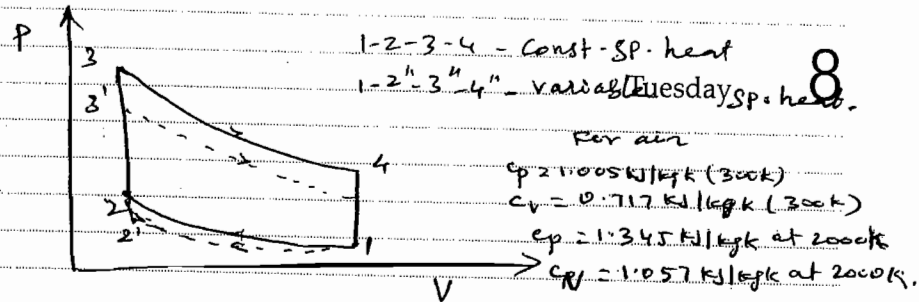 P
3
3'
2
2'
4
1
V
1-2-3-4 - Const. sp. heat
1-2"-3"-4" - variable sp. heat.
Tuesday 8
For air
cp = 1.005 kJ/kgk (300k)
cv = 0.717 kJ/kgk (300k)
cp = 1.345 kJ/kgk at 2000k
cv = 1.057 kJ/kgk at 2000k.